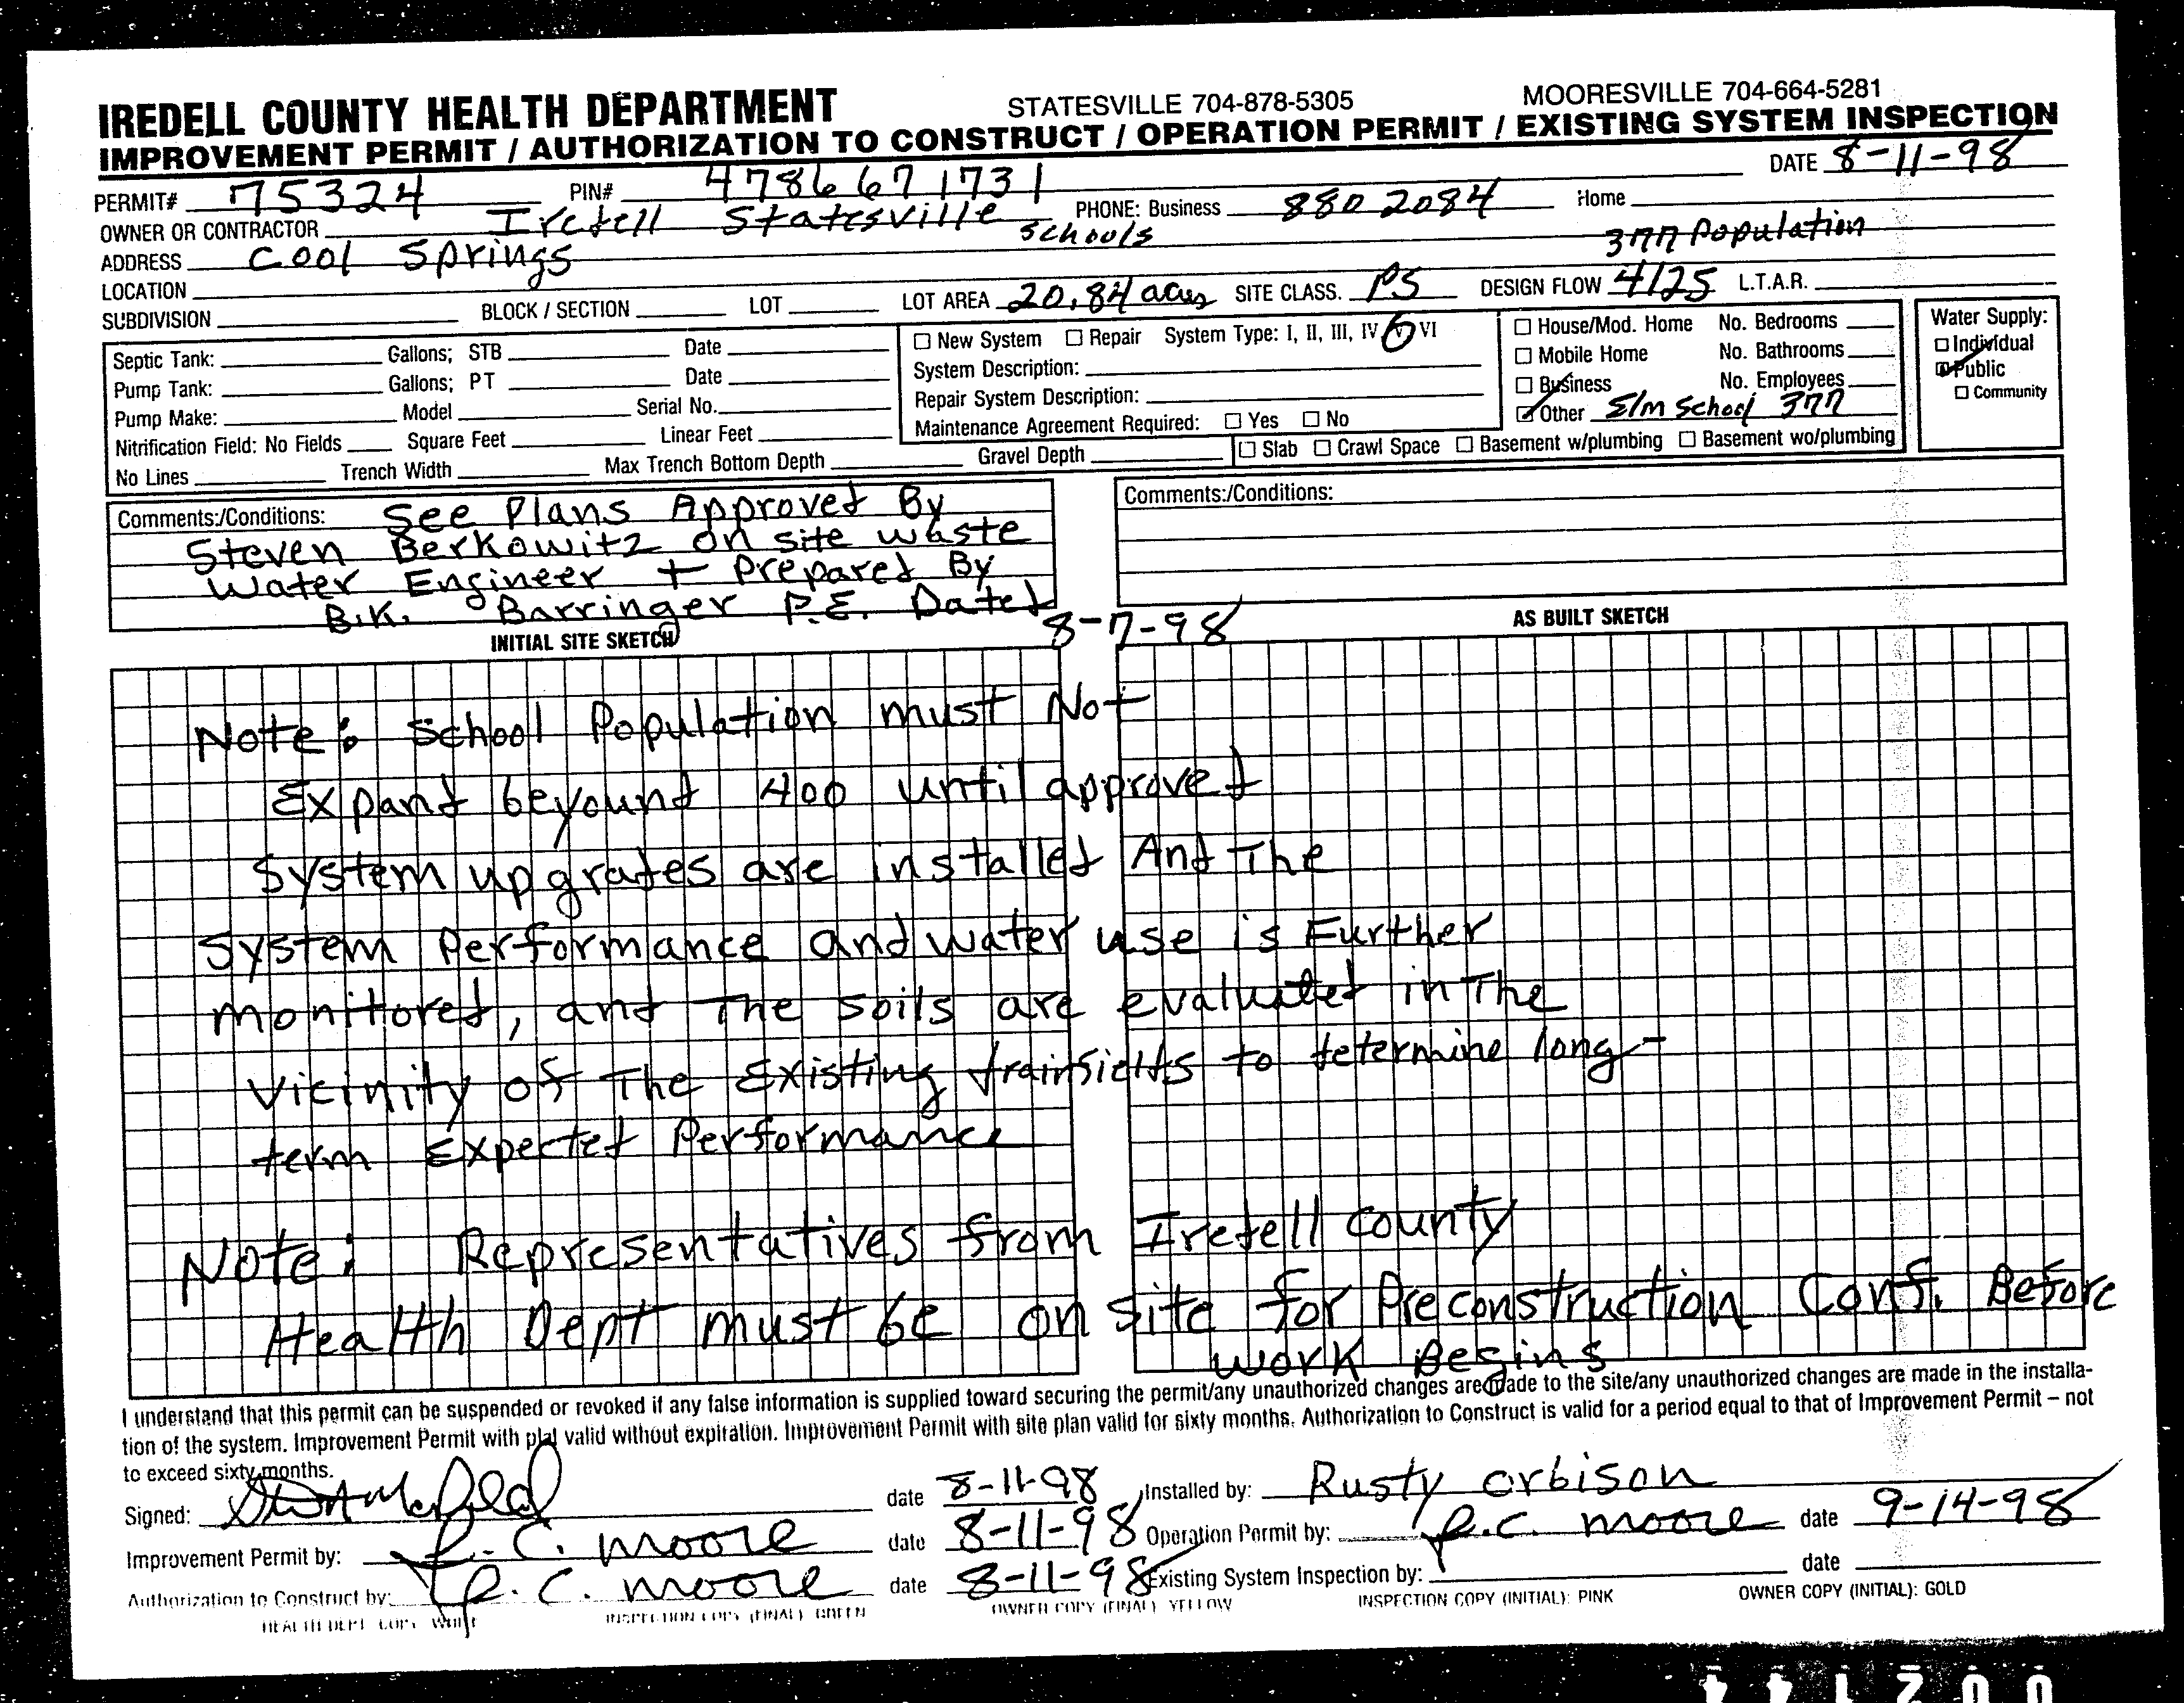 IREDELL COUNTY HEALTH DEPARTMENT STATESVILLE 704-878-5305 MOORESVILLE 704-664-5281
IMPROVEMENT PERMIT / AUTHORIZATION TO CONSTRUCT / OPERATION PERMIT / EXISTING SYSTEM INSPECTION
PERMIT# 75324 PIN# 4786671731 DATE 8-11-98
OWNER OR CONTRACTOR Iredell Statesville Schools PHONE: Business 880 2084 Home
ADDRESS Cool Springs 377 Population
LOCATION
SUBDIVISION BLOCK / SECTION LOT LOT AREA 20.84 acres SITE CLASS. PS DESIGN FLOW 4125 L.T.A.R.
Septic Tank: Gallons; STB Date
Pump Tank: Gallons; PT Date
Pump Make: Model Serial No.
Nitrification Field: No Fields Square Feet Linear Feet
No Lines Trench Width Max Trench Bottom Depth Gravel Depth
☐ New System ☐ Repair System Type: I, II, III, IV V VI
System Description:
Repair System Description:
Maintenance Agreement Required: ☐ Yes ☐ No
☐ House/Mod. Home No. Bedrooms
☐ Mobile Home No. Bathrooms
☐ Business No. Employees
☑ Other Elm School 377
☐ Slab ☐ Crawl Space ☐ Basement w/plumbing ☐ Basement wo/plumbing
Water Supply:
☐ Individual
☑ Public
☐ Community
Comments:/Conditions: See Plans Approved By
Steven Berkowitz on site waste
Water Engineer + Prepared By
B.K. Barringer P.E. Dated
8-7-98
Comments:/Conditions:
INITIAL SITE SKETCH
AS BUILT SKETCH
Note: School Population must Not
Expand beyound 400 until approved
System upgrades are installed And The
System Performance and water use is Further
monitored, and The soils are evaluated in The
Vicinity of The Existing drainfields to determine long-
term Expected Performance
Note: Representatives from Iredell county
Health Dept must be on site for Preconstruction Conf. Before
work Begins
I understand that this permit can be suspended or revoked if any false information is supplied toward securing the permit/any unauthorized changes are made to the site/any unauthorized changes are made in the installa-
tion of the system. Improvement Permit with plat valid without expiration. Improvement Permit with site plan valid for sixty months. Authorization to Construct is valid for a period equal to that of Improvement Permit – not
to exceed sixty months.
Signed: date 8-11-98 Installed by: Rusty Orbison
Improvement Permit by: R.C. Moore date 8-11-98 Operation Permit by: R.C. Moore date 9-14-98
Authorization to Construct by: R.C. Moore date 8-11-98 Existing System Inspection by: date
HEALTH DEPT. COPY WHITE INSPECTION COPY (FINAL) GREEN OWNER COPY (FINAL) YELLOW INSPECTION COPY (INITIAL): PINK OWNER COPY (INITIAL): GOLD